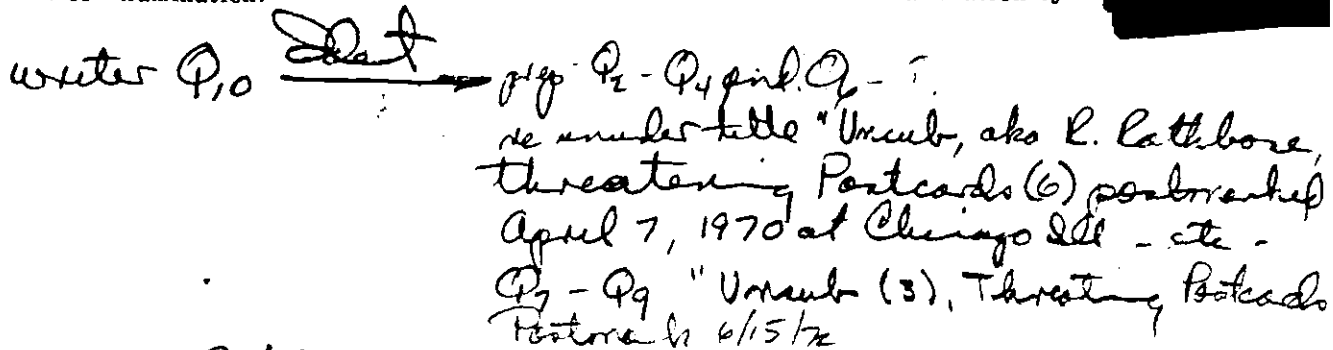 writer Q10 Ident prep Q2 - Q4 Q6 -
re under title "Unsub, aka R. Rathbone,
threatening Postcards (6) postmarked
April 7, 1970 at Chicago Ill - etc -
Q7 - Q9 "Unsub (3), Threating Postcards
Postmark 6/15/